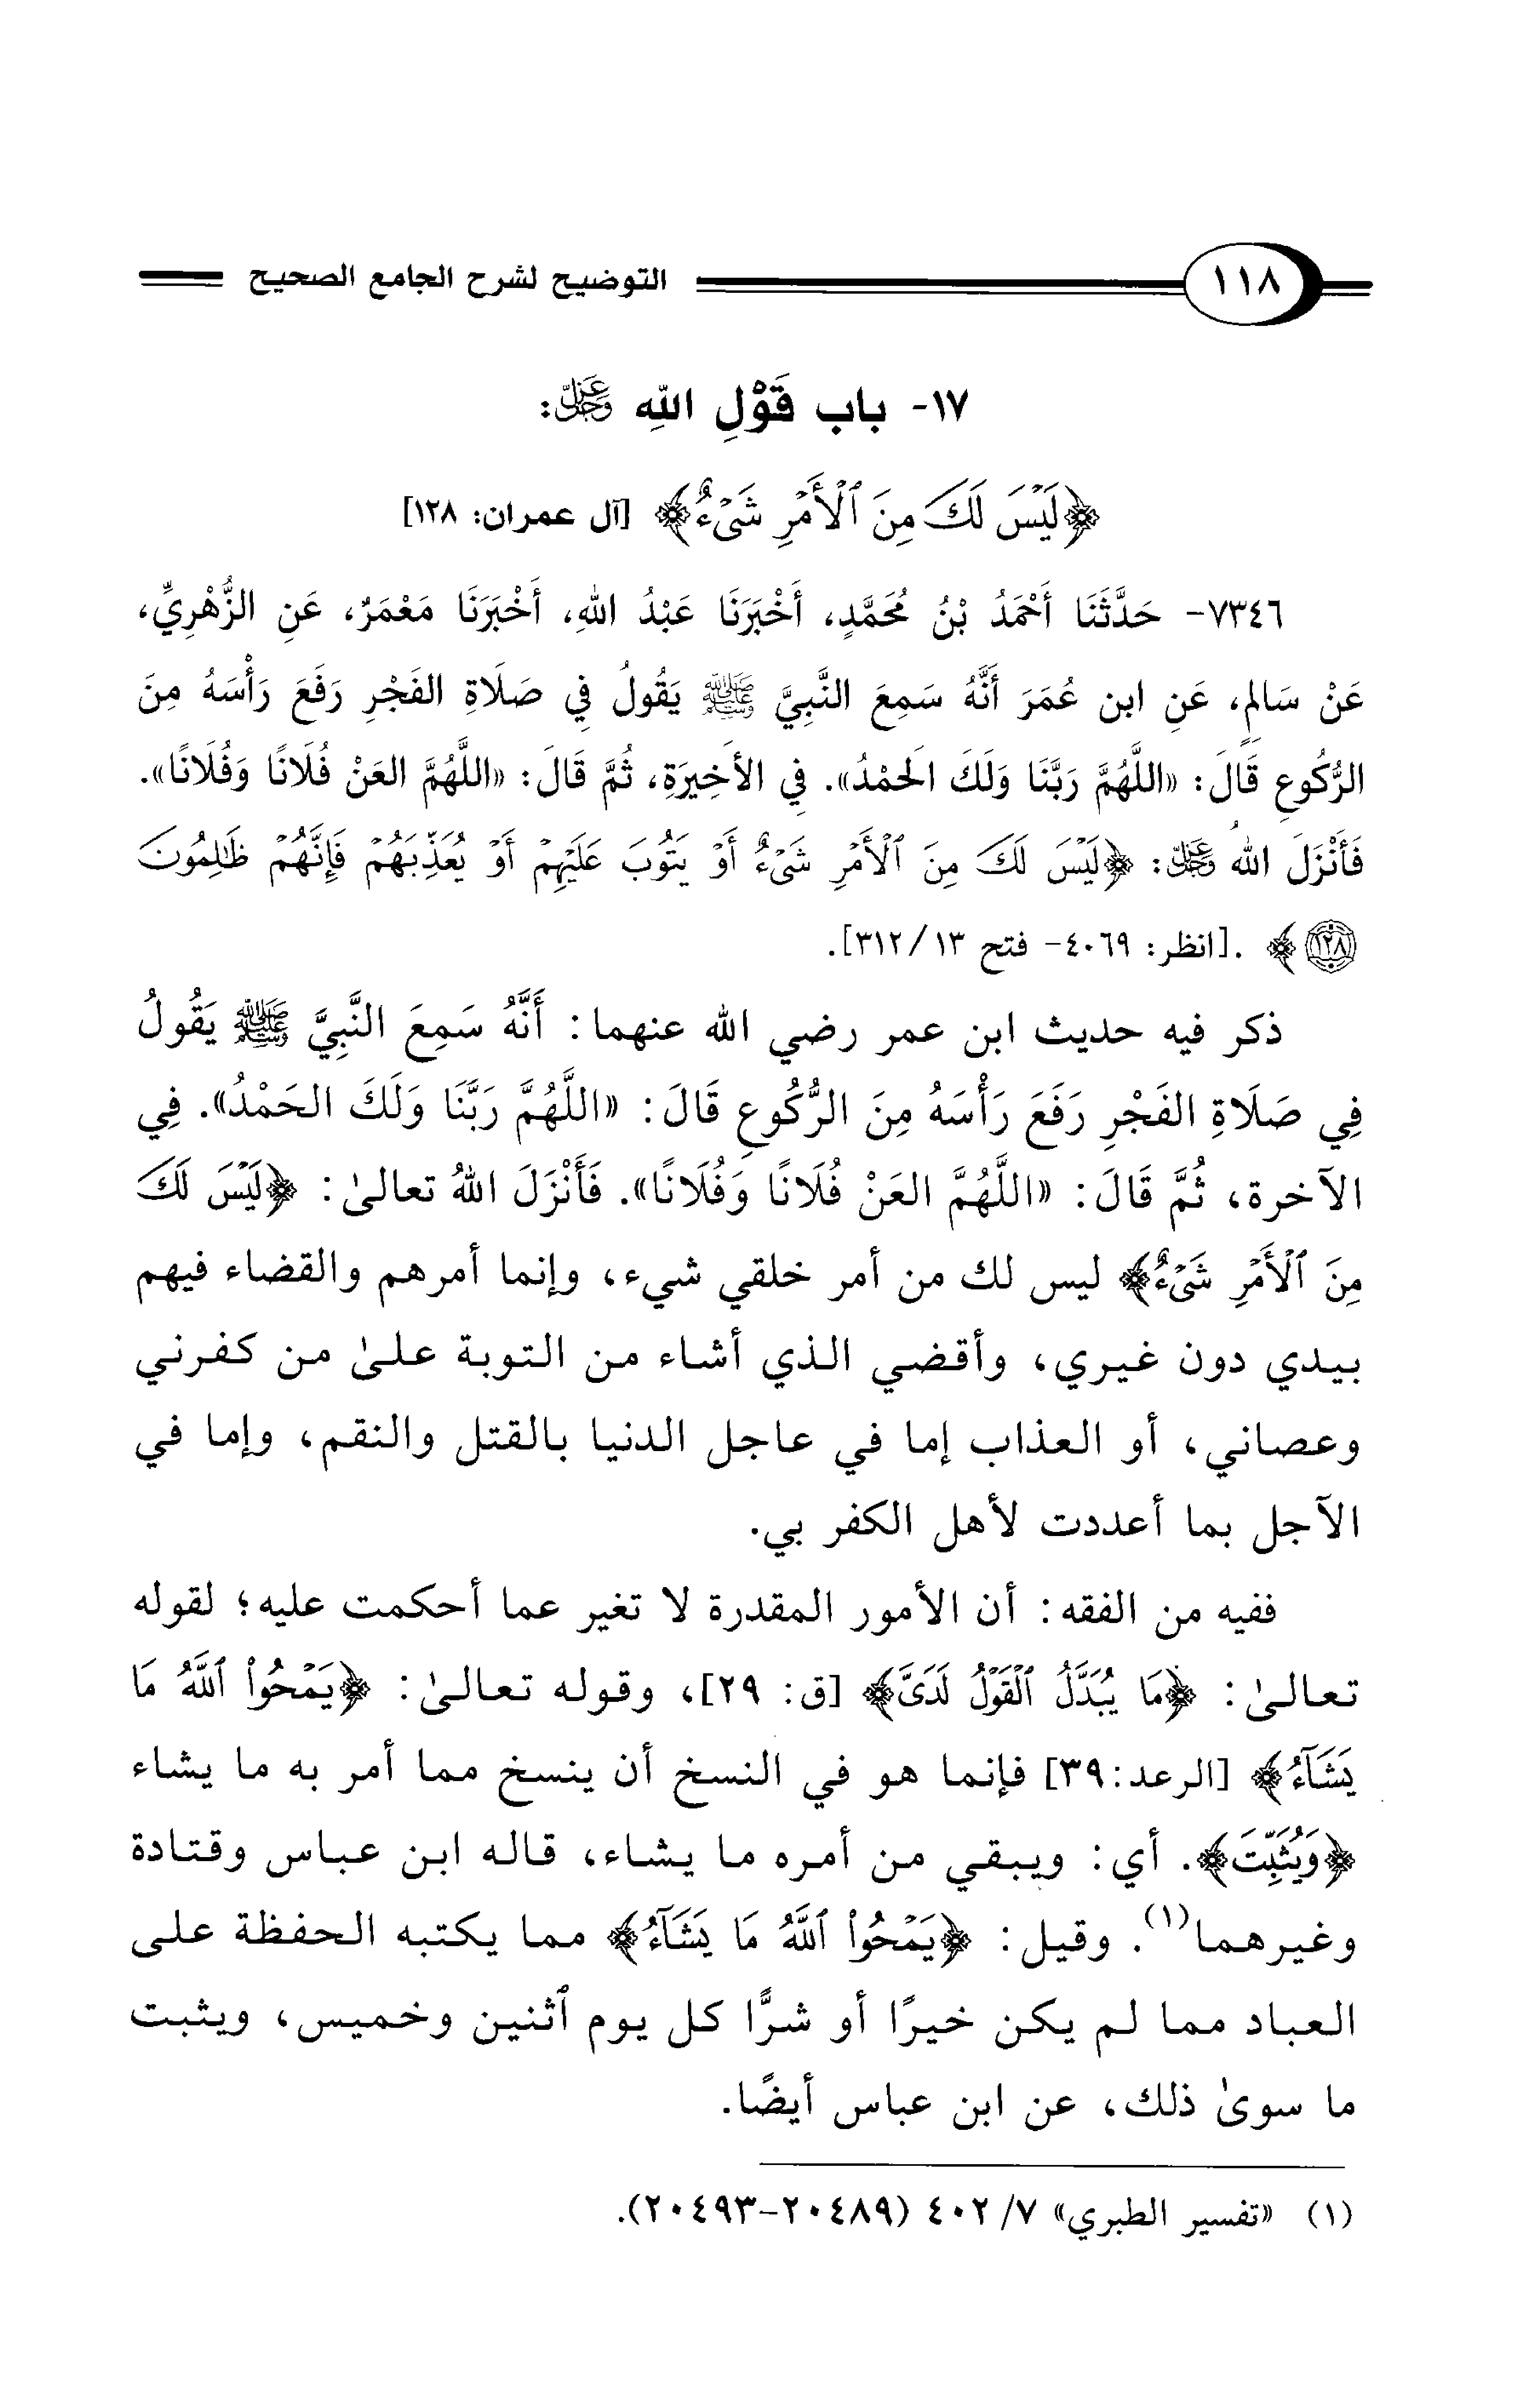 ١١٨ التوضيح لشرح الجامع الصحيح
١٧- باب قَوْلِ اللهِ عَزَّ وَجَلَّ:
﴿لَيْسَ لَكَ مِنَ ٱلْأَمْرِ شَىْءٌ﴾ [آل عمران: ١٢٨]
٧٣٤٦- حَدَّثَنَا أَحْمَدُ بْنُ مُحَمَّدٍ، أَخْبَرَنَا عَبْدُ اللهِ، أَخْبَرَنَا مَعْمَرٌ، عَنِ الزُّهْرِيِّ،
عَنْ سَالمٍ، عَنِ ابن عُمَرَ أَنَّهُ سَمِعَ النَّبِيَّ ﷺ يَقُولُ فِي صَلَاةِ الفَجْرِ رَفَعَ رَأْسَهُ مِنَ
الرُّكُوعِ قَالَ: «اللَّهُمَّ رَبَّنَا وَلَكَ الَحمْدُ». فِي الأَخِيرَةِ، ثُمَّ قَالَ: «اللَّهُمَّ العَنْ فُلَانًا وَفُلَانًا».
فَأَنْزَلَ اللهُ عَزَّ وَجَلَّ: ﴿لَيْسَ لَكَ مِنَ ٱلْأَمْرِ شَىْءٌ أَوْ يَتُوبَ عَلَيْهِمْ أَوْ يُعَذِّبَهُمْ فَإِنَّهُمْ ظَٰلِمُونَ
١٢٨﴾ .[انظر: ٤٠٦٩- فتح ١٣/ ٣١٢].
ذكر فيه حديث ابن عمر رضي الله عنهما: أَنَّهُ سَمِعَ النَّبِيَّ ﷺ يَقُولُ
فِي صَلَاةِ الفَجْرِ رَفَعَ رَأْسَهُ مِنَ الرُّكُوعِ قَالَ: «اللَّهُمَّ رَبَّنَا وَلَكَ الحَمْدُ». فِي
الآخرة، ثُمَّ قَالَ: «اللَّهُمَّ العَنْ فُلَانًا وَفُلَانًا». فَأَنْزَلَ اللهُ تعالىٰ: ﴿لَيْسَ لَكَ
مِنَ ٱلْأَمْرِ شَىْءٌ﴾ ليس لك من أمر خلقي شيء، وإنما أمرهم والقضاء فيهم
بيدي دون غيري، وأقضي الذي أشاء من التوبة علىٰ من كفرني
وعصاني، أو العذاب إما في عاجل الدنيا بالقتل والنقم، وإما في
الآجل بما أعددت لأهل الكفر بي.
ففيه من الفقه: أن الأمور المقدرة لا تغير عما أحكمت عليه؛ لقوله
تعالىٰ: ﴿مَا يُبَدَّلُ ٱلْقَوْلُ لَدَىَّ﴾ [ق: ٢٩]، وقوله تعالىٰ: ﴿يَمْحُوا۟ ٱللَّهُ مَا
يَشَآءُ﴾ [الرعد:٣٩] فإنما هو في النسخ أن ينسخ مما أمر به ما يشاء
﴿وَيُثَبِّتَ﴾. أي: ويبقي من أمره ما يشاء، قاله ابن عباس وقتادة
وغيرهما(١). وقيل: ﴿يَمْحُوا۟ ٱللَّهُ مَا يَشَآءُ﴾ مما يكتبه الحفظة على
العباد مما لم يكن خيرًا أو شرًّا كل يوم ٱثنين وخميس، ويثبت
ما سوىٰ ذلك، عن ابن عباس أيضًا.
(١) «تفسير الطبري» ٧/ ٤٠٢ (٢٠٤٨٩-٢٠٤٩٣).